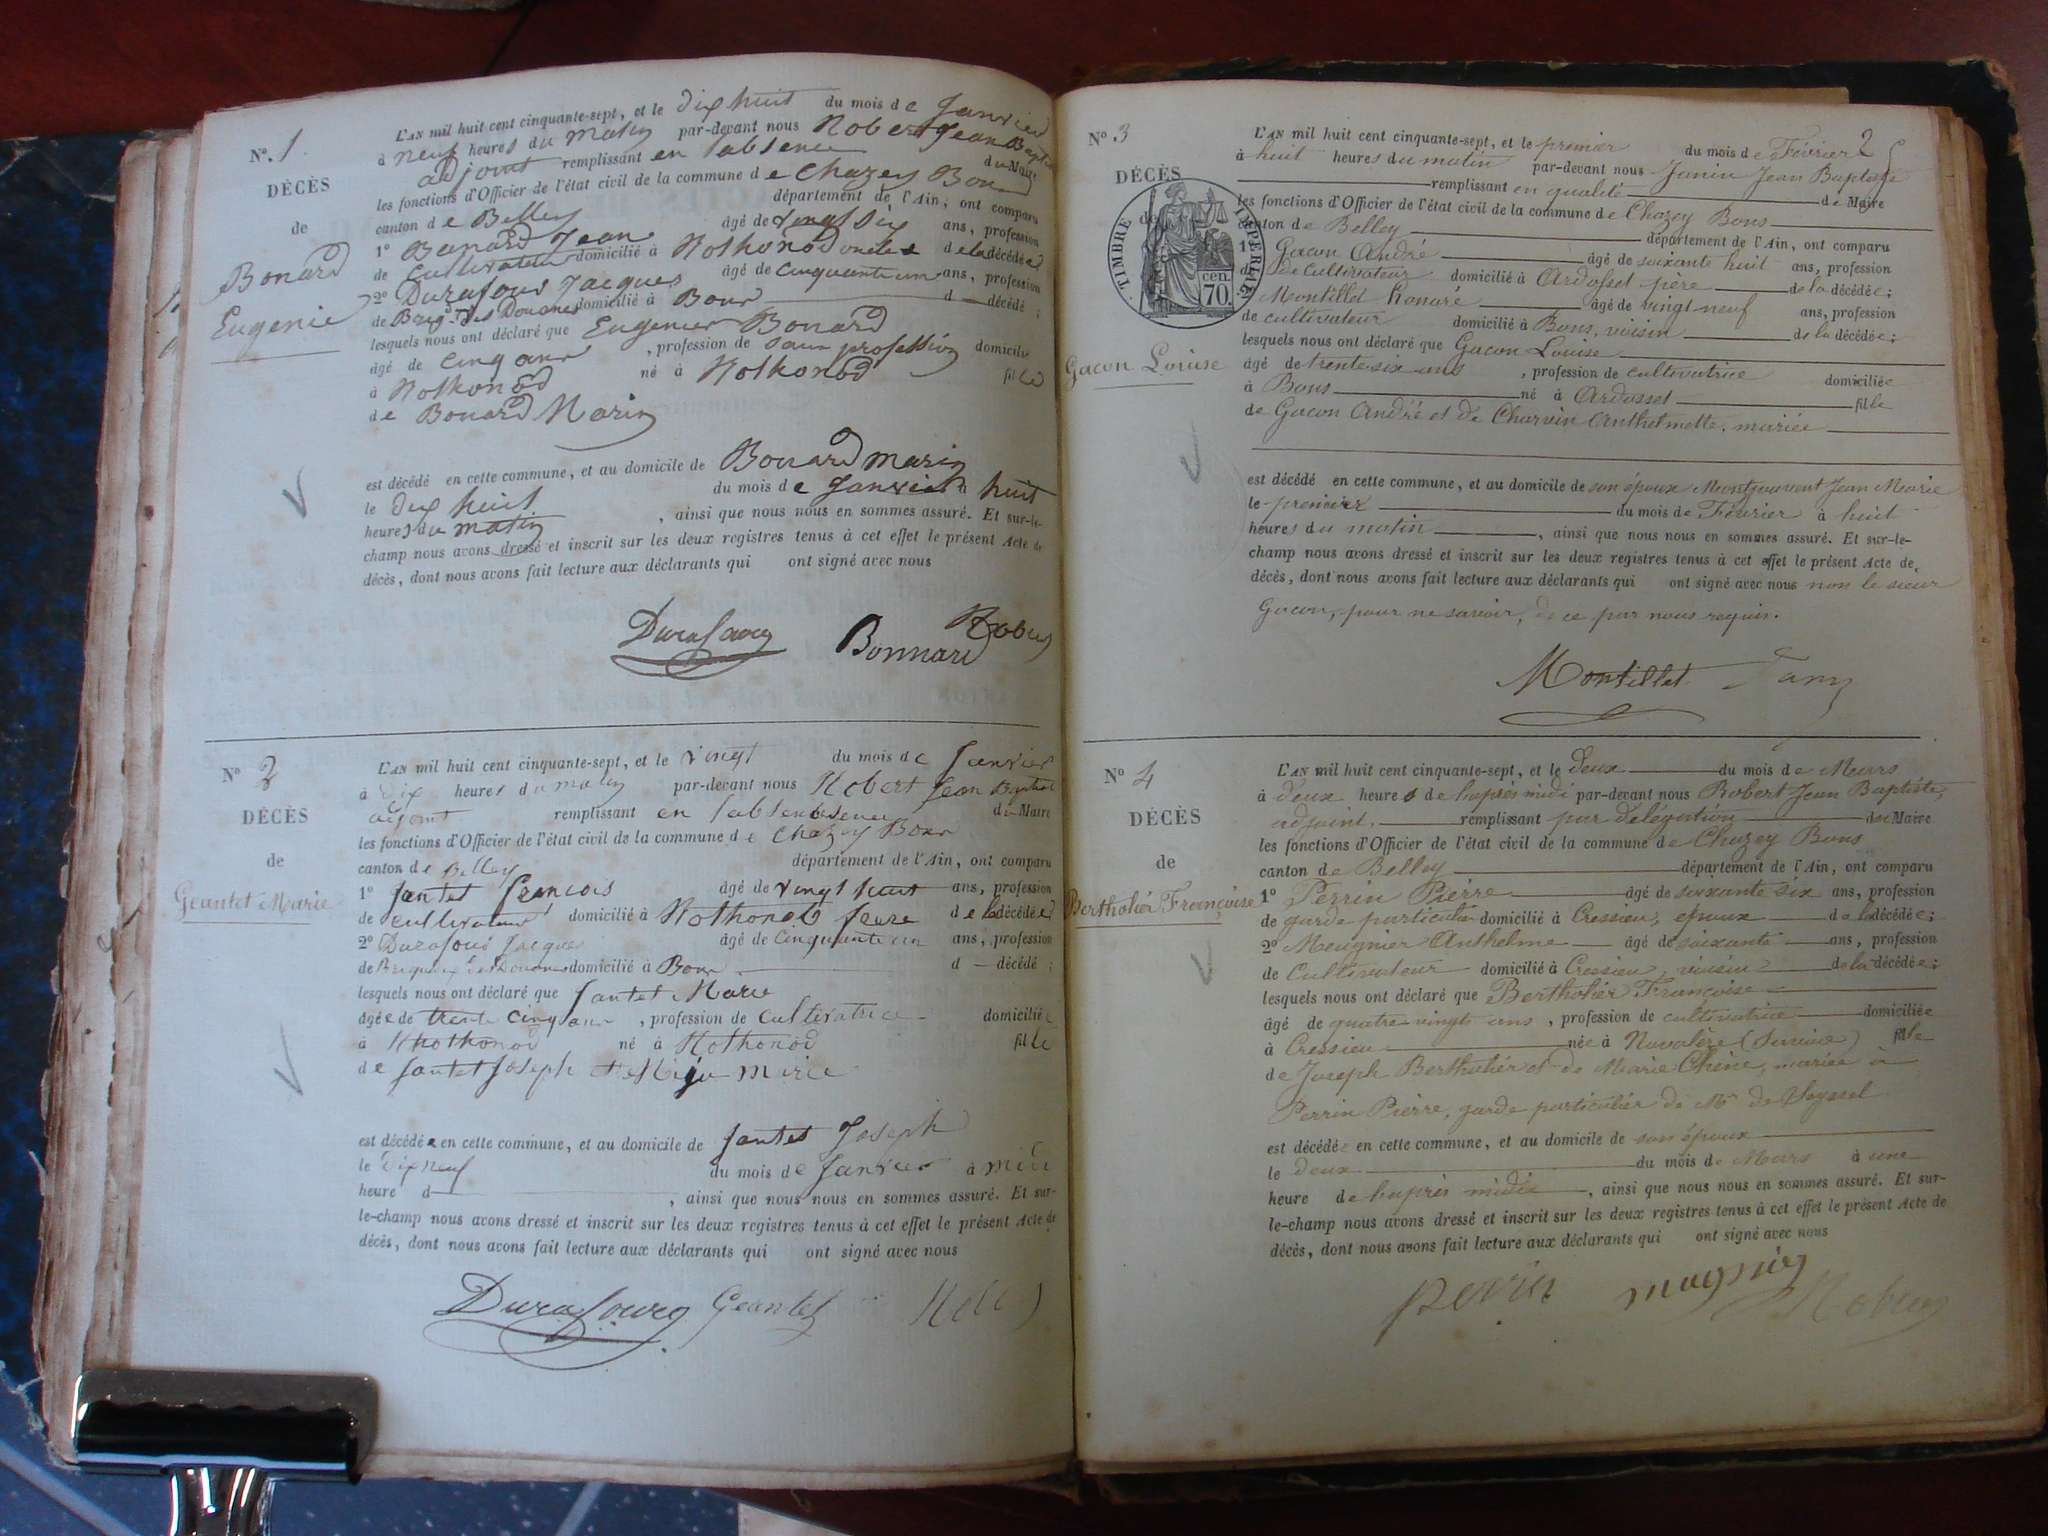 N°. 1
DÉCÈS
de
Bonard
Eugenie
L'AN mil huit cent cinquante-sept, et le dix huit du mois de Janvier
à neuf heures du matin par-devant nous Robert Jean Baptiste
adjoint remplissant en l'absence du Maire
les fonctions d'Officier de l'état civil de la commune de Chazey Bons
canton de Belley département de l'Ain; ont comparu
1° Bonard Jean âgé de vingt six ans, profession
de Cultivateur domicilié à Rothonod oncle de la décédée
2° Durafour Jacques âgé de cinquante un ans, profession
de Brig. des Douanes domicilié à Bons d décédé ;
lesquels nous ont déclaré que Eugenie Bonard
âgé de cinq ans , profession de sans profession domicilié
à Rothonod né à Rothonod fille
de Bonard Marin
est décédé en cette commune, et au domicile de Bonard marin
le dix huit du mois de Janvier à huit
heures du matin , ainsi que nous nous en sommes assuré. Et sur-le-
champ nous avons dressé et inscrit sur les deux registres tenus à cet effet le présent Acte de
décès, dont nous avons fait lecture aux déclarants qui ont signé avec nous
Durafourg Bonnard Robert
N° 2
DÉCÈS
de
Geantet Marie
L'AN mil huit cent cinquante-sept, et le vingt du mois de Janvier
à dix heures du matin par-devant nous Robert Jean Baptiste
adjoint remplissant en l'absence du Maire
les fonctions d'Officier de l'état civil de la commune de Chazey Bons
canton de Belley département de l'Ain, ont comparu
1° Jantet François âgé de vingt huit ans, profession
de cultivateur domicilié à Rothonod frère de la décédée
2° Durafour Jacques âgé de cinquante un ans, profession
de des Douanes domicilié à Bons d décédé ;
lesquels nous ont déclaré que Jantet Marie
âgée de trente cinq ans , profession de cultivatrice domiciliée
à Rhothonod né à Rothonod fille
de Jantet Joseph
est décédée en cette commune, et au domicile de Jantet Joseph
le dix neuf du mois de Janvier à midi
heure d , ainsi que nous nous en sommes assuré. Et sur-
le-champ nous avons dressé et inscrit sur les deux registres tenus à cet effet le présent Acte de
décès, dont nous avons fait lecture aux déclarants qui ont signé avec nous
Durafourg Geantet
2
N° 3
DÉCÈS
de
TIMBRE IMPERIAL
cen.
70.
Gacon Louise
L'AN mil huit cent cinquante-sept, et le premier du mois de Février
à huit heures du matin par-devant nous Janin Jean Baptiste
remplissant en qualité de Maire
les fonctions d'Officier de l'état civil de la commune de Chazey Bons
canton de Belley département de l'Ain, ont comparu
1° Gacon André âgé de soixante huit ans, profession
de de cultivateur domicilié à Ardosset père de la décédée;
Montillet honoré âgé de vingt neuf ans, profession
de cultivateur domicilié à Bons, voisin de la décédée;
lesquels nous ont déclaré que Gacon Louise
âgé de trente six ans , profession de cultivatrice domiciliée
à Bons né à Ardosset fille
de Gacon André et de Charvin Anthelmette, mariée
est décédé en cette commune, et au domicile de son époux Montjouvent Jean Marie
le premier du mois de Février à huit
heures du matin , ainsi que nous nous en sommes assuré. Et sur-le-
champ nous avons dressé et inscrit sur les deux registres tenus à cet effet le présent Acte de
décès, dont nous avons fait lecture aux déclarants qui ont signé avec nous non le sieur
Gacon, pour ne savoir, de ce par nous requis.
Montillet Janin
N° 4
DÉCÈS
de
Bertholier Françoise
L'AN mil huit cent cinquante-sept, et le deux du mois de Mars
à deux heures de l'après midi par-devant nous Robert Jean Baptiste,
adjoint. remplissant par délégation du Maire
les fonctions d'Officier de l'état civil de la commune de Chazey Bons
canton de Belley département de l'Ain, ont comparu
1° Perrin Pierre âgé de soixante six ans, profession
de garde particulier domicilié à Cressieu, époux de la décédée;
2° Meugnier Anthelme âgé de soixante ans, profession
de Cultivateur domicilié à Cressieu, voisin de la décédée;
lesquels nous ont déclaré que Bertholier Françoise
âgé de quatre vingts ans , profession de cultivatrice domiciliée
à Cressieu née à Novalèse fille
de Joseph Bertholier et de Marie Chêne, mariée à
Perrin Pierre, garde particulier de Mr de Seyssel
est décédée en cette commune, et au domicile de son époux
le deux du mois de Mars à une
heure de l'après midi , ainsi que nous nous en sommes assuré. Et sur-
le-champ nous avons dressé et inscrit sur les deux registres tenus à cet effet le présent Acte de
décès, dont nous avons fait lecture aux déclarants qui ont signé avec nous
perrin magnin Robert